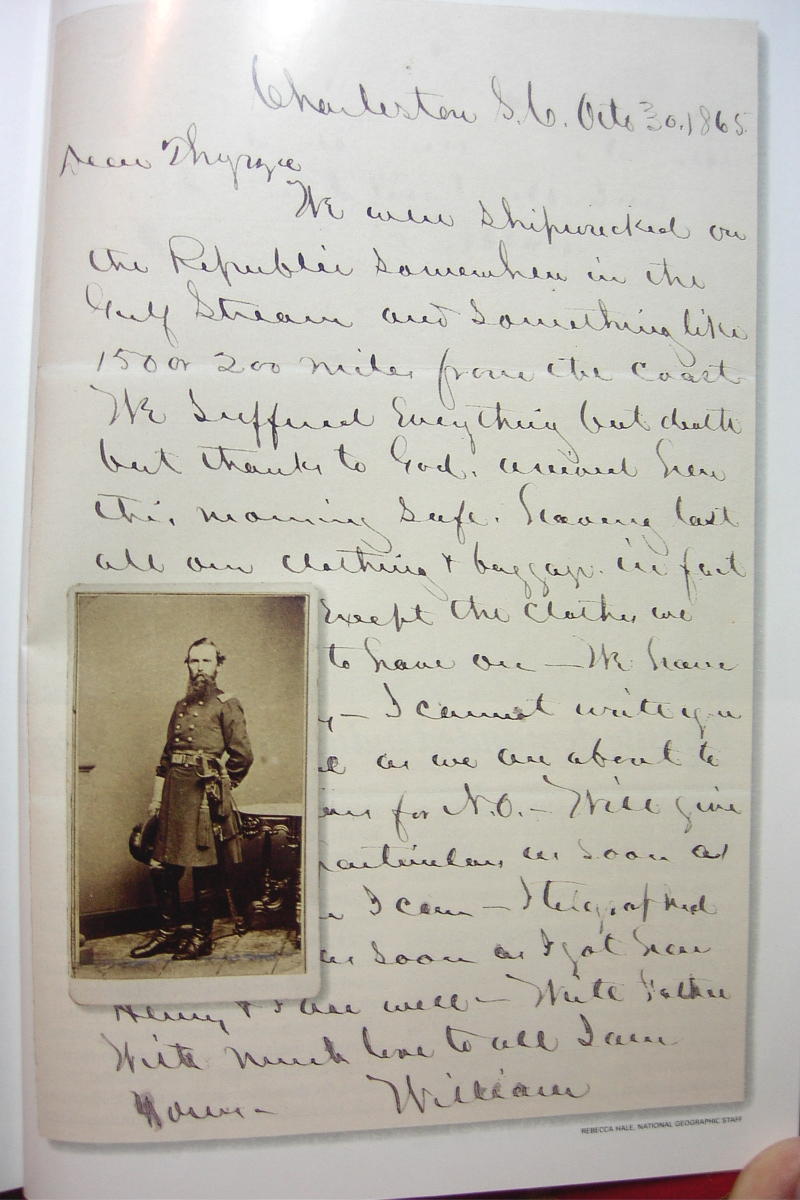 Charleston S.C. Octo 30, 1865
Dear Thyrza
We were shipwrecked on
the Republic somewhere in the
Gulf Stream and something like
150 or 200 miles from the coast
We suffered everything but death
but thanks to God, arrived here
this morning safe. Having lost
all our clothing & baggage. in fact
Except the clothes we
to have on — We have
— I cannot write you
as we are about to
for N.O. — Will give
particulars as soon as
I can — I telegraphed
as soon as I got here
Henry & I are well — Write Father
With much love to all I am
Yours — William
REBECCA HALE, NATIONAL GEOGRAPHIC STAFF